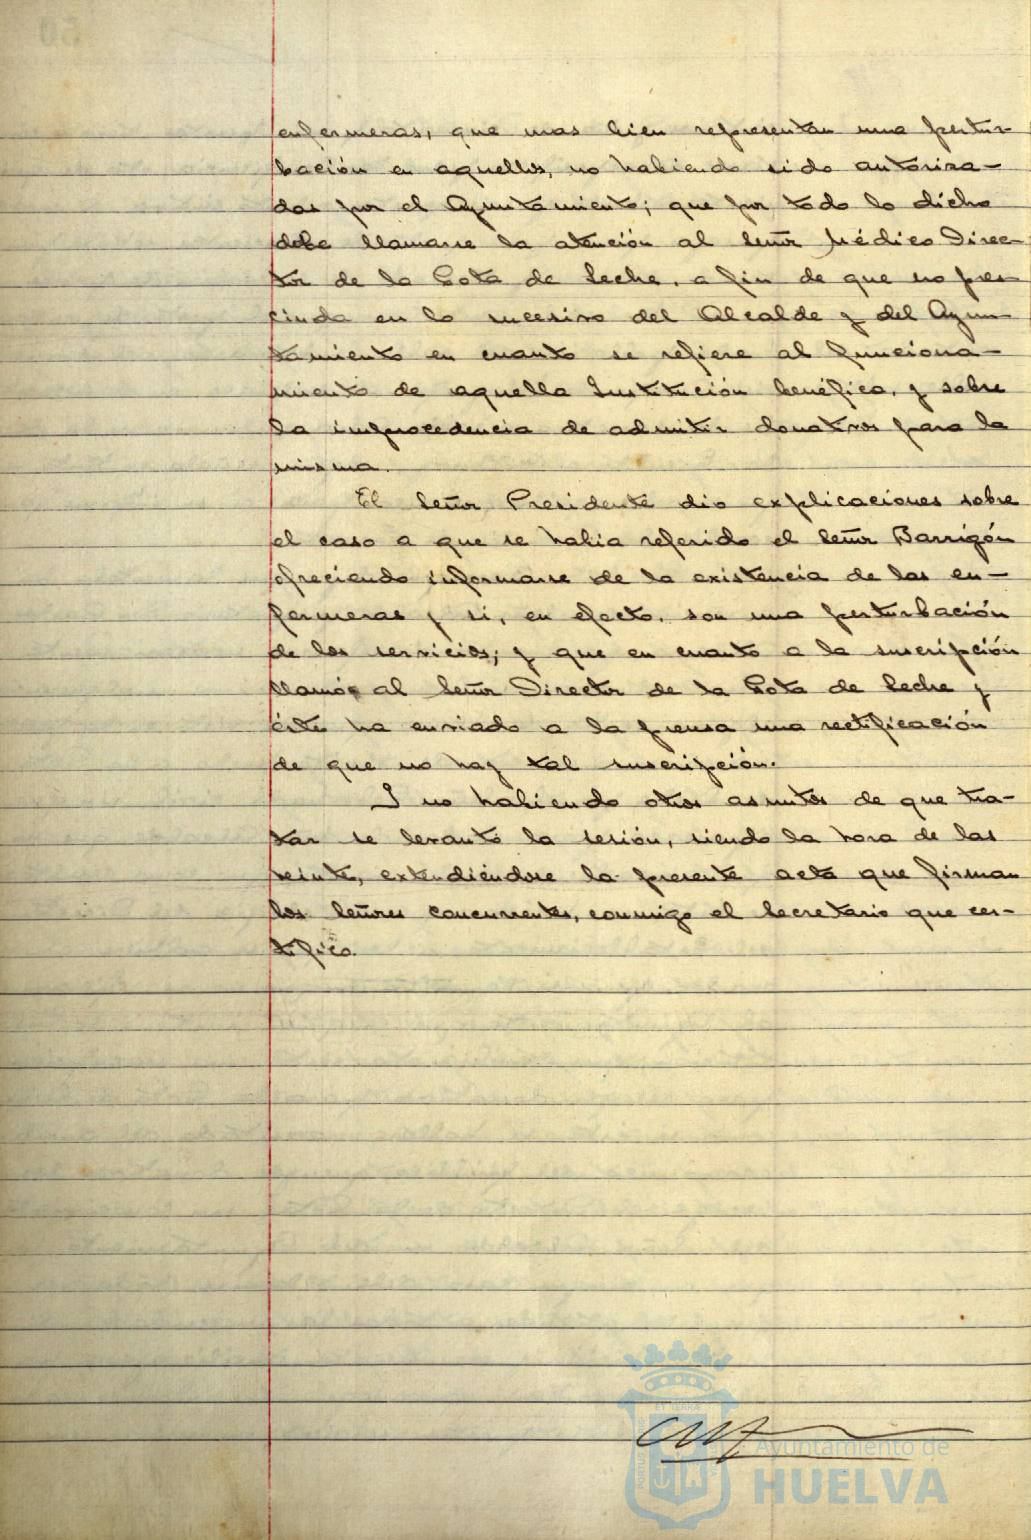 enfermeras, que mas bien representan una pertur-
bación en aquellos, no habiendo sido autoriza-
das por el Ayuntamiento; que por todo lo dicho
debe llamarse la atención al Señor Médico Direc-
tor de la Gota de Leche, a fin de que no pres-
cinda en lo sucesivo del Alcalde y del Ayun-
tamiento en cuanto se refiere al funciona-
miento de aquella Institución benéfica, y sobre
la improcedencia de admitir donativos para la
misma.
El Señor Presidente dio explicaciones sobre
el caso a que se había referido el Señor Barrigón
ofreciendo informarse de la existencia de las en-
fermeras y si, en efecto, son una perturbación
de los servicios; y que en cuanto a la suscripción
llamó al Señor Director de la Gota de Leche y
éste ha enviado a la prensa una rectificación
de que no hay tal suscripción.
Y no habiendo otros asuntos de que tra-
tar se levantó la sesión, siendo la hora de las
veinte, extendiéndose la presente acta que firman
los Señores concurrentes, conmigo el Secretario que cer-
tifico.
Ayuntamiento de
HUELVA